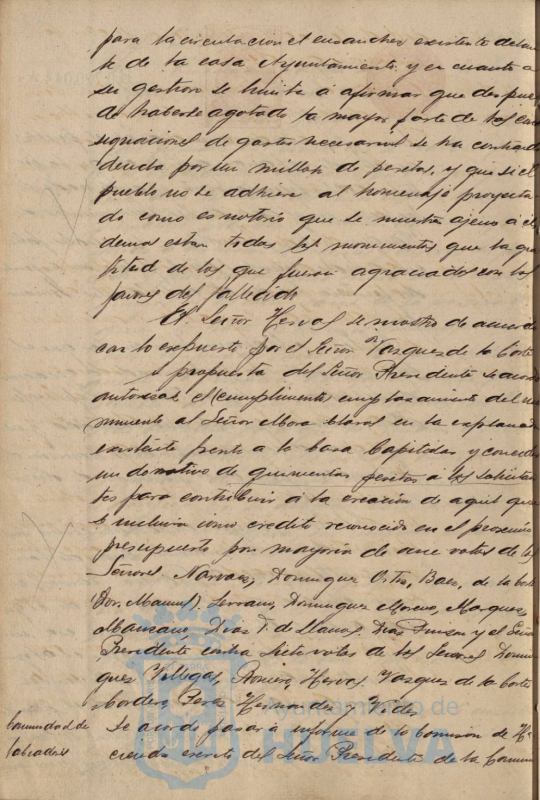 para la circulacion el ensanche existente delan
te de la casa Ayuntamiento y en cuanto a
su gestion se limita á afirmar que despues
de haberse agotado la mayor parte de las con
signaciones de gastos necesarios se ha contra
deuda por un millon de pesetas, y que si el
pueblo no se adhiere al homenaje proyecta
do como es notorio que se muestra ajeno á él
demas estan todos los monumentos que la gra
titud de los que fueron agraciados con los
favores del fallecido
El Señor Hervas se mostro de acuerdo
con lo expuesto por el Señor Vazquez de la Corte
A propuesta del Señor Presidente se acordó
autorizar el (cumplimiento) emplazamiento del mo
numento al Señor Mora Claros en la explanada
existente frente a la Casa Capitular y conceder
un donativo de quinientas pesetas á los solicitan
tes para contribuir á la ereccion de aquel que
se incluiria como credito reconocido en el proximo
presupuesto por mayoria de once votos de los
Señores Narvaez, Dominguez Ortiz, Baez, de la Corte
(Don Manuel), Serrano, Dominguez Moreno, Marquez,
Manzano, Diaz F. de Llanos, Diaz y el Señor
Presidente contra siete votos de los Señores Domin
guez Villegas, Romero, Hervas, Vazquez de la Corte
Cordero, Perez Hernandez y
Comunidad de
Labradores
Se acordó pasar á informe de la Comision de Ha
cienda escrito del Señor Presidente de la Comuni
Ayuntamiento de
HUELVA